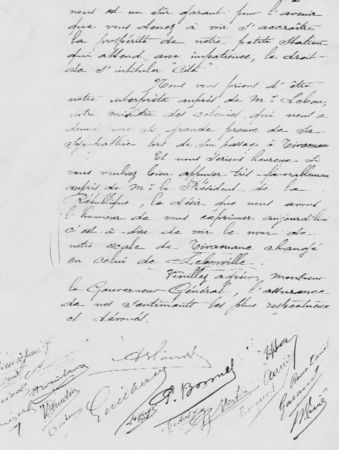 nous est un sûr garant pour l'avenir
que vous tenez à voir s'accroître
la prospérité de notre petite station
qui attend, avec impatience, le droit
de s'intituler "Cité"
Nous vous prions d'être
notre interprète auprès de Mr Lebon,
notre ministre des colonies qui nous a
donné une si grande preuve de sa
sympathie lors de son passage à Tivaouane
Et nous serions heureux si
vous vouliez bien appuyer très favorablement
auprès de Mr le Président de la
République, le désir que nous avons
l'honneur de vous exprimer aujourd'hui
c'est-à-dire de voir le nom de
notre escale de Tivaouane changé
en celui de Lebonville.
Veuillez agréer, Monsieur
le Gouverneur Général, l'assurance
de nos sentiments les plus respectueux
et dévoués.
P. Bonnel